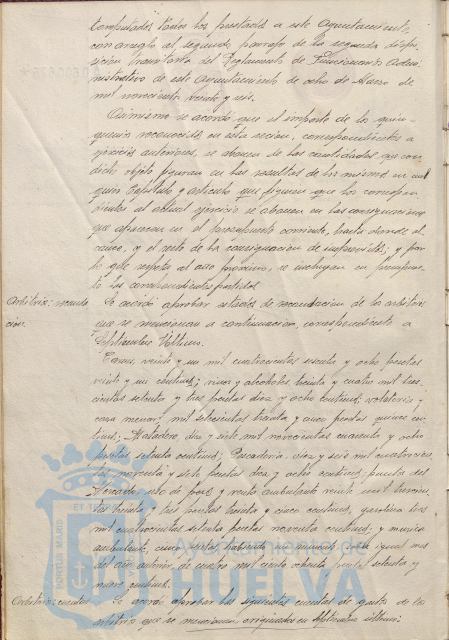 computados todos los prestados a este Ayuntamiento
con arreglo al segundo párrafo de la segunda dispo-
sición transitoria del Reglamento de Funcionarios Admi-
nistrativos de este Ayuntamiento de ocho de Marzo de
mil novecientos veinte y seis.
Asimismo se acordó que el importe de los quin-
quenios reconocidos en esta sesión, correspondientes a
ejercicios anteriores, se abonen de las cantidades que con
dicho objeto figuran en las resultas de los mismos en
capítulo y artículo que figuren que los correspon-
dientes al actual ejercicio se abonen en las consignaciones
que aparecen en el presupuesto corriente, hasta donde al-
cance, y el resto de la consignación de imprevistos; y por
lo que respecta al año próximo, se incluyan en presupues-
to las correspondientes partidas
Arbitrios: recauda
ción.
Se acordó aprobar estados de recaudación de los arbitrios
que se mencionan a continuación, correspondiente a
Septiembre último.
Carnes, veinte y un mil cuatrocientas sesenta y ocho pesetas
veinte y un céntimos; vinos y alcoholes treinta y cuatro mil tres-
cientas setenta y tres pesetas diez y ocho céntimos; volatería y
caza menor, mil seiscientas treinta y cinco pesetas quince cén-
timos; Matadero, diez y siete mil novecientas cuarenta y ocho
pesetas setenta céntimos; Pescadería, diez y seis mil cuatrocien-
tas noventa y siete pesetas diez y ocho céntimos; puestos del
Mercado, y venta ambulante veinte mil trescien-
tas treinta y tres pesetas treinta y cinco céntimos; gasolina tres
mil cuatrocientas setenta pesetas noventa céntimos; y música
ambulante, cinco pesetas en igual mes
del año anterior de cuatro mil ciento ochenta pesetas setenta y
nueve céntimos.
Arbitrios: cuentas
Se acordó aprobar las siguientes cuentas de gastos de los
arbitrios que se mencionan originados en Septiembre último:
PORTUS MARIS ET TERRAE
Ayuntamiento de
HUELVA